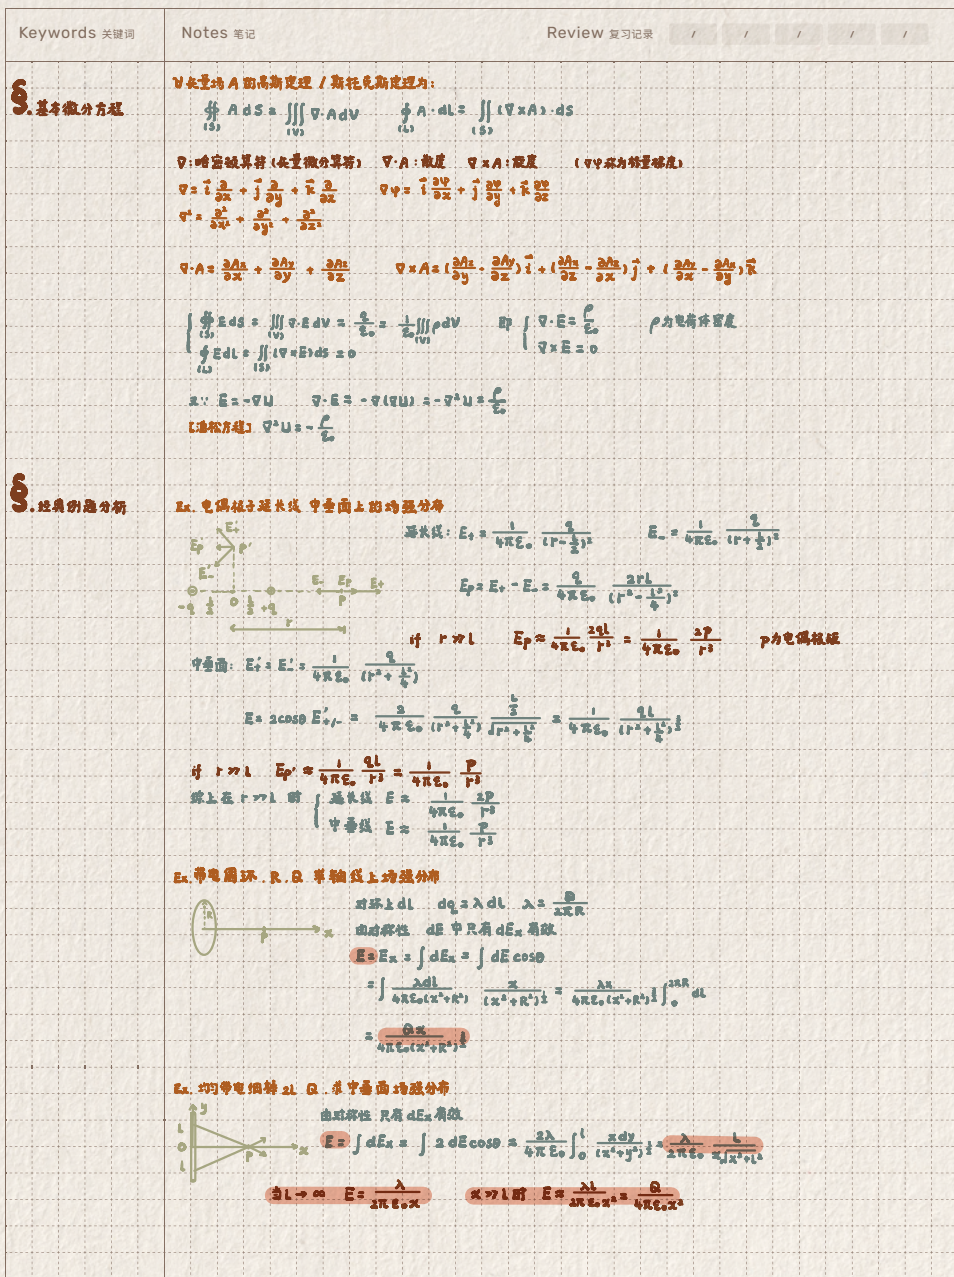 Keywords 关键词 Notes 笔记 Review 复习记录 / / / / /
∀矢量场 A 的高斯定理 / 斯托克斯定理为:
§.基本微分方程
∯(S) A dS = ∭(V) ∇·A dV ∮(L) A·dL = ∬(S) (∇×A)·dS
∇:哈密顿算符(矢量微分算符) ∇·A:散度 ∇×A:旋度 (∇φ称为标量梯度)
∇ = i⃗ ∂/∂x + j⃗ ∂/∂y + k⃗ ∂/∂z ∇φ = i⃗ ∂φ/∂x + j⃗ ∂φ/∂y + k⃗ ∂φ/∂z
∇² = ∂²/∂x² + ∂²/∂y² + ∂²/∂z²
∇·A = ∂Ax/∂x + ∂Ay/∂y + ∂Az/∂z ∇×A = (∂Az/∂y - ∂Ay/∂z) i⃗ + (∂Ax/∂z - ∂Az/∂x) j⃗ + (∂Ay/∂x - ∂Ax/∂y) k⃗
{ ∯(S) E dS = ∭(V) ∇·E dV = q/ε₀ = 1/ε₀ ∭(V) ρdV 即 { ∇·E = ρ/ε₀ ρ为电荷体密度
∮(L) E dL = ∬(S) (∇×E)dS = 0 ∇×E = 0
又∵ E = -∇U ∇·E = -∇(∇U) = -∇²U = ρ/ε₀
[泊松方程] ∇²U = - ρ/ε₀
§.经典例题分析
Ex. 电偶极子延长线 中垂面上的场强分布
E₊' Ep' P' E₋'
-q L/2 O L/2 +q E₋ Ep E₊ P
r
延长线: E₊ = 1/4πε₀ q/(r-L/2)² E₋ = 1/4πε₀ q/(r+L/2)²
Ep = E₊ - E₋ = q/4πε₀ 2rL/(r²-L²/4)²
if r≫L Ep ≈ 1/4πε₀ 2qL/r³ = 1/4πε₀ 2P/r³ p为电偶极矩
中垂面: E₊' = E₋' = 1/4πε₀ q/(r²+L²/4)
E = 2cosθ E'₊/₋ = 2/4πε₀ q/(r²+L²/4) (L/2)/√(r²+L²/4) = 1/4πε₀ qL/(r²+L²/4)^(3/2)
if r≫L Ep' ≈ 1/4πε₀ qL/r³ = 1/4πε₀ P/r³
综上在 r≫L 时 { 延长线 E = 1/4πε₀ 2P/r³
中垂线 E = 1/4πε₀ P/r³
Ex. 带电圆环 . R . Q 求轴线上场强分布
R P x
对环上dl dq = λdl λ = Q/2πR
由对称性 dE 中只有 dEx 有效
E = Ex = ∫dEx = ∫ dE cosθ
= ∫ λdl/4πε₀(x²+R²) x/(x²+R²)^(1/2) = λx/4πε₀(x²+R²)^(3/2) ∫₀^2πR dL
= Qx/4πε₀(x²+R²)^(3/2)
Ex. 均匀带电细棒 2L Q . 求中垂面场强分布
y L O L P x
由对称性 只有 dEx 有效
E = ∫dEx = ∫ 2 dE cosθ = 2λ/4πε₀ ∫₀^L xdy/(x²+y²)^(3/2) = λ/2πε₀ L/x√(x²+L²)
当L→∞ E = λ/2πε₀x x≫L时 E ≈ λL/2πε₀x² = Q/4πε₀x²